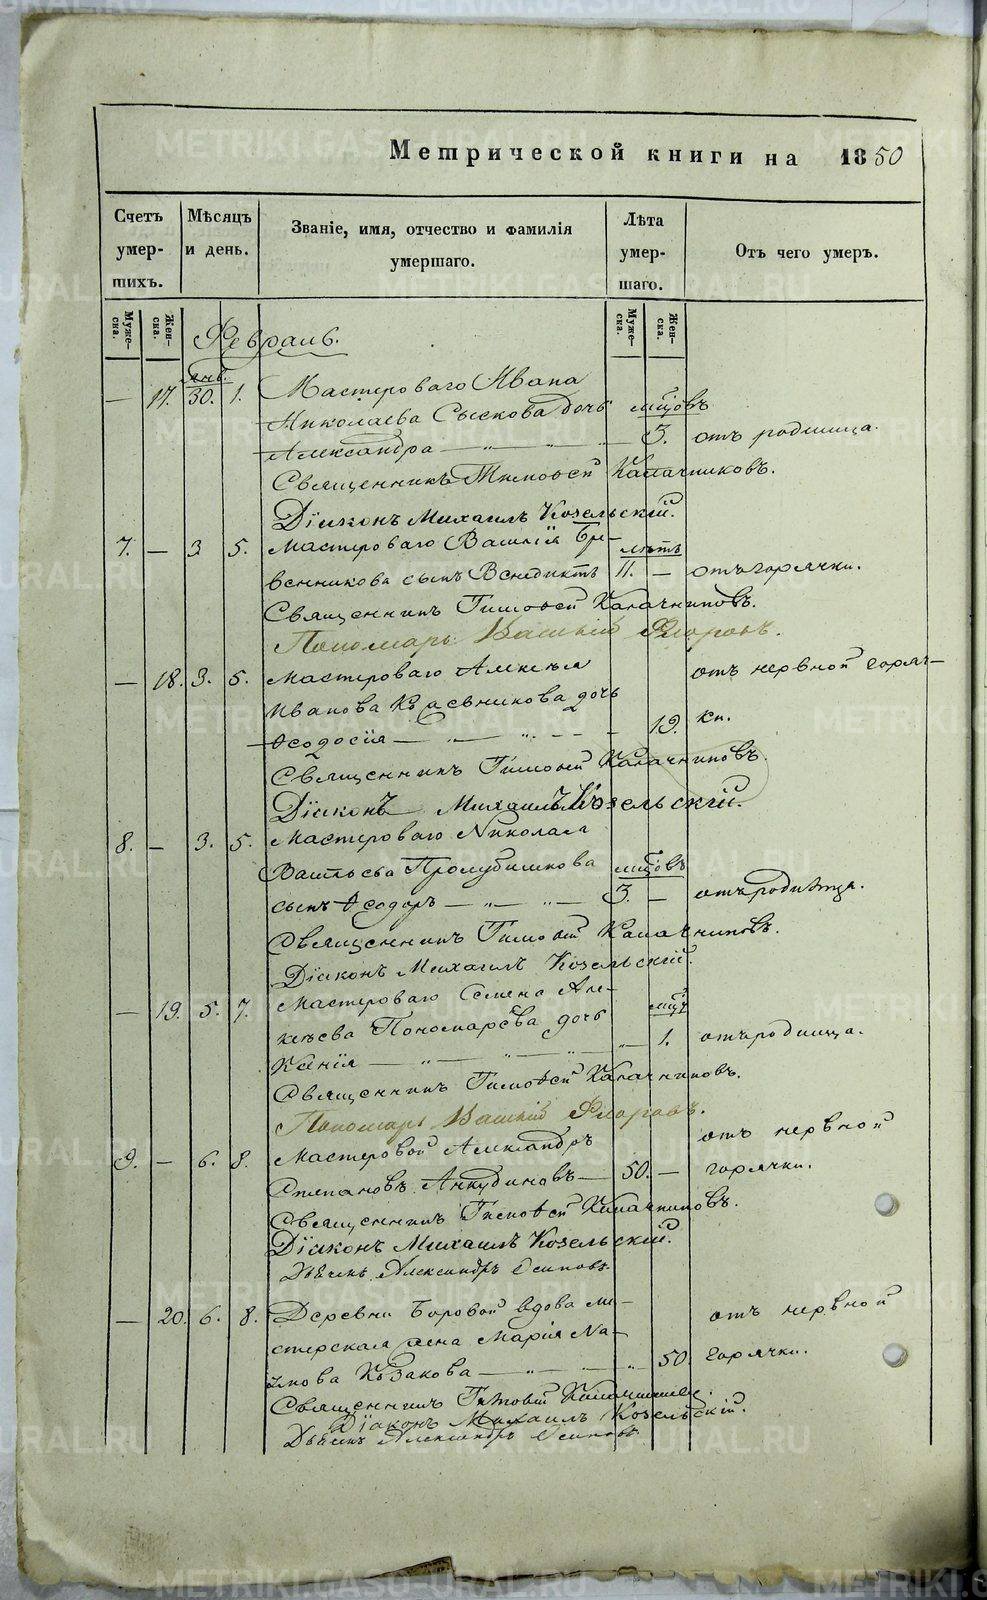 Метрической книги на 1850
Счетъ умер- шихъ.
Мѣсяцъ и день.
Званіе, имя, отчество и фамилія умершаго.
Лѣта умер- шаго.
Отъ чего умеръ.
Муже- ска.
Жен- ска.
Муже- ска.
Жен- ска.
Февраль.
Янв.
— 17. 30. 1. Мастероваго Ивана
Николаева Сыскова дочь мцовъ
Александра — 3. отъ родимца.
Священникъ Тимофей Калачниковъ.
Діаконъ Михаилъ Козельскій.
7. — 3 5. Мастероваго Василія Бре-
лѣтъ
венникова сынъ Венедиктъ 11. — отъ горячки.
Священникъ Тимофей Калачниковъ.
Пономарь Василій Флоровъ.
— 18. 3. 5. Мастероваго Алексѣя отъ нервной горяч-
Иванова дочь
Ѳеодосія — 19. ки.
Священникъ Тимофей Калачниковъ.
Діаконъ Михаилъ Козельскій.
8. — 3. 5. Мастероваго Николая
Васильева сына мцовъ
сынъ Ѳеодоръ — 3. — отъ родимца.
Священникъ Тимофей Калачниковъ.
Діаконъ Михаилъ Козельскій.
— 19. 5. 7. Мастероваго Семена Але-
мцъ
ксѣева Пономарёва дочь
Ксенія — 1. отъ родимца.
Священникъ Тимофей Калачниковъ.
Пономарь Василій Флоровъ.
9. — 6. 8. Мастеровой Александръ отъ нервной
Степановъ Анкудиновъ — 50. — горячки.
Священникъ Тимофей Калачниковъ.
Діаконъ Михаилъ Козельскій.
Дьячекъ Александръ Осиповъ
— 20. 6. 8. Деревни Боровой вдова ма- отъ нервной
стерская жена Марія
Козакова — 50. горячки.
Священникъ Тимофей Калачниковъ.
Діаконъ Михаилъ Козельскій.
Дьячекъ Александръ Осиповъ
METRIKI.GASO-URAL.RU